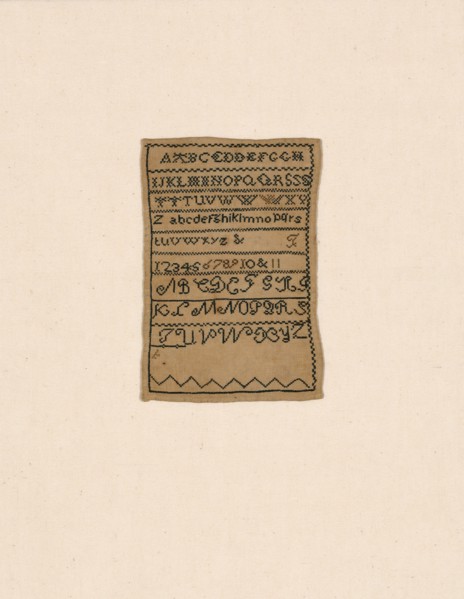 ABCCDDEFGGH
IJKLMNOPQQRSSS
TTTUVWWXY
Z abcdefghiklmnopqrs
tuvwxyz &
12345678910&11
ABCDEFGHI
KLMNOPQRS
TUVWXYZ